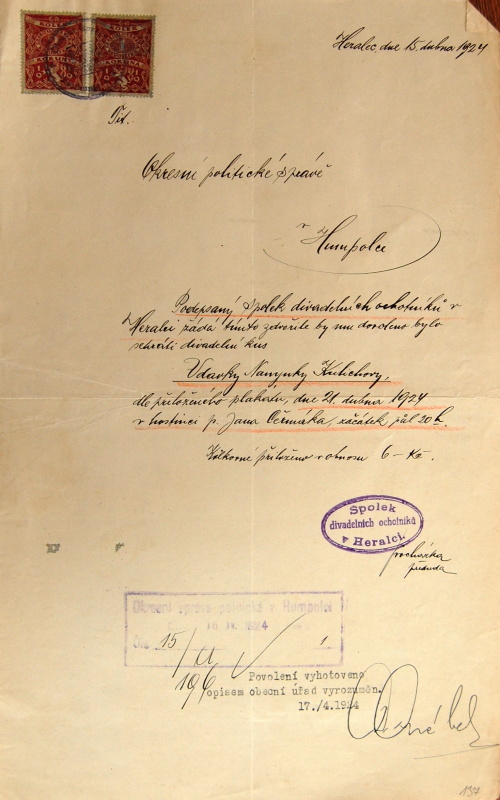 Heralec dne 15. dubna 1924
KOLEK KOLEK
KORUNA KORUNA
Tit.
Okresní politické správě
v Humpolci
Podepsaný Spolek divadelních ochotníků v
Heralci žádá tímto zdvořile by mu dovoleno bylo
sehráti divadelní kus
Vdavky Nanynky Kulichovy,
dle přiloženého plakátu, dne 21. dubna 1924
v hostinci p. Jana Čermáka, začátek půl 20 h.
Kolkovné přiloženo v obnosu 6 – Kč.
Spolek
divadelních ochotníků
v Heralci.
Procházka
předseda
Okresní správa politická v Humpolci
16 IV. 1924
15/II 1
196
Povolení vyhotoveno
opisem obecní úřad vyrozuměn.
17./4.1924
137